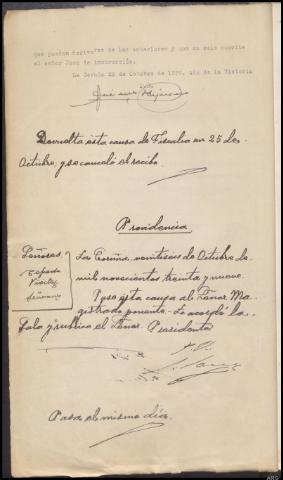 que puedan derivarse de las anteriores y que su sala remite
el señor Juez de instrucción.
La Coruña 25 de Octubre de 1939, Año de la Victoria
Devuelta esta causa de Fiscalía en 25 de
Octubre, y se canceló el recibo.
Providencia
Señores
Tejada
La Coruña, veintiseis de Octubre de
mil novecientos treinta y nueve.
Pase esta causa al Señor Ma-
gistrado ponente.- Lo acordó la
Sala y rubrica el Señor Presidente
Pasa el mismo día.
ARG